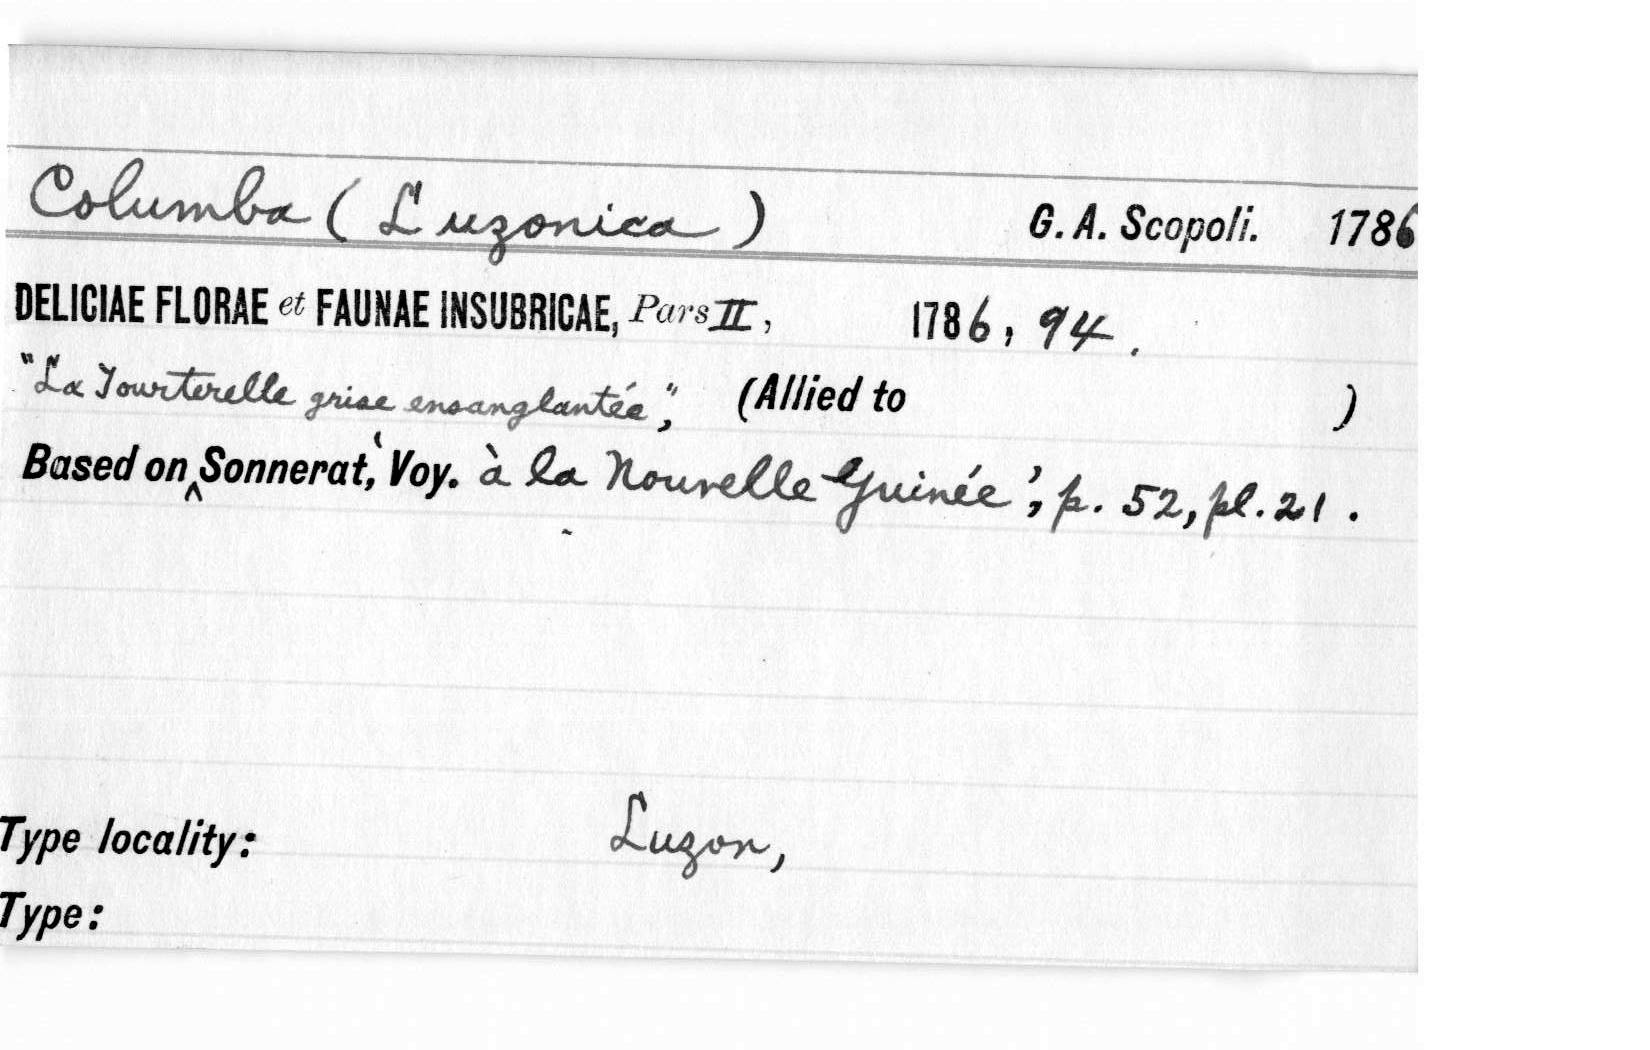 Columba (Luzonica) G. A. Scopoli. 1786
DELICIAE FLORAE et FAUNAE INSUBRICAE, Pars II, 1786, 94.
"La Tourterelle grise ensanglantée", (Allied to )
Based on ^ Sonnerat, 'Voy. à la Nouvelle Guinée', p. 52, pl. 21.
Type locality: Luzon,
Type: